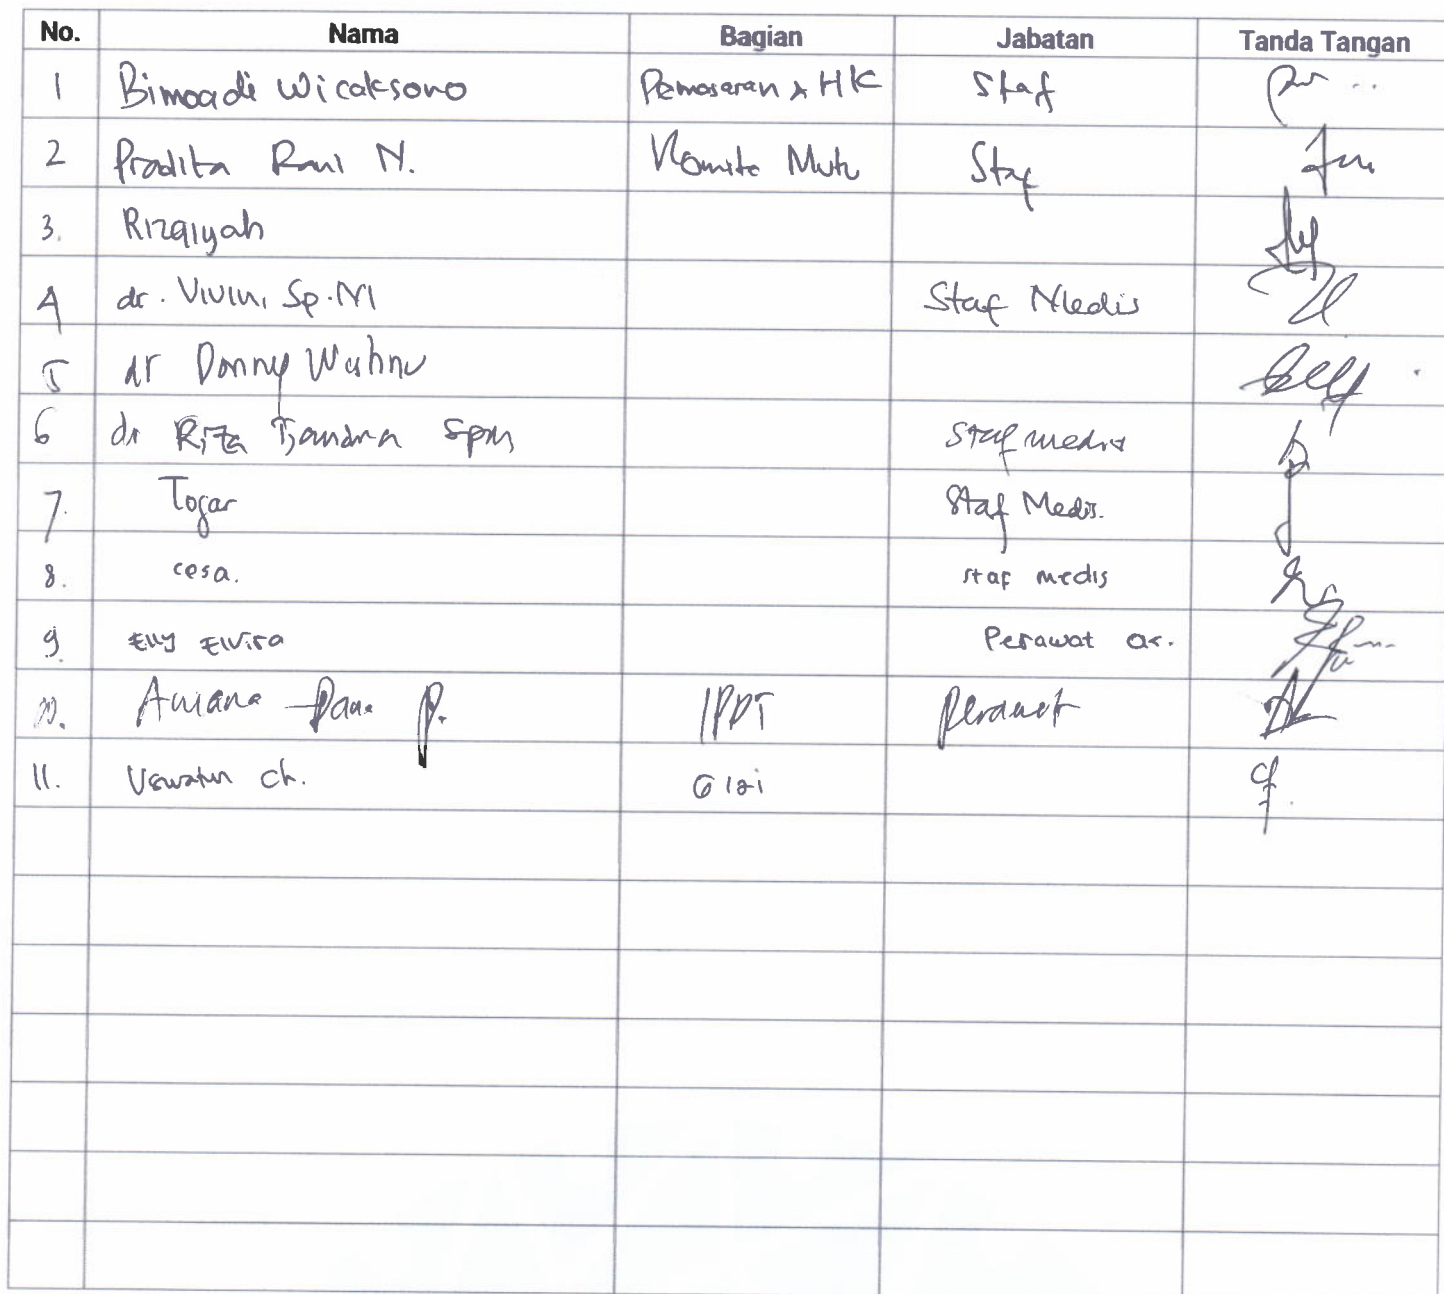 No. Nama Bagian Jabatan Tanda Tangan
1 Bimoadi Wicaksono Pemasaran & HK Staf
2 Pradita Rani N. Komite Mutu Staf
3. Rizqiyah
4 dr. Vivin, Sp.M Staf Medis
5 dr Donny Wishnu
6 dr Riza Tjandra SpM Staf medis
7. Togar Staf Medis.
8. cesa. staf medis
9. Elly Elvira Perawat
10. P. Perawat
11. Uswatun Ch. Gizi